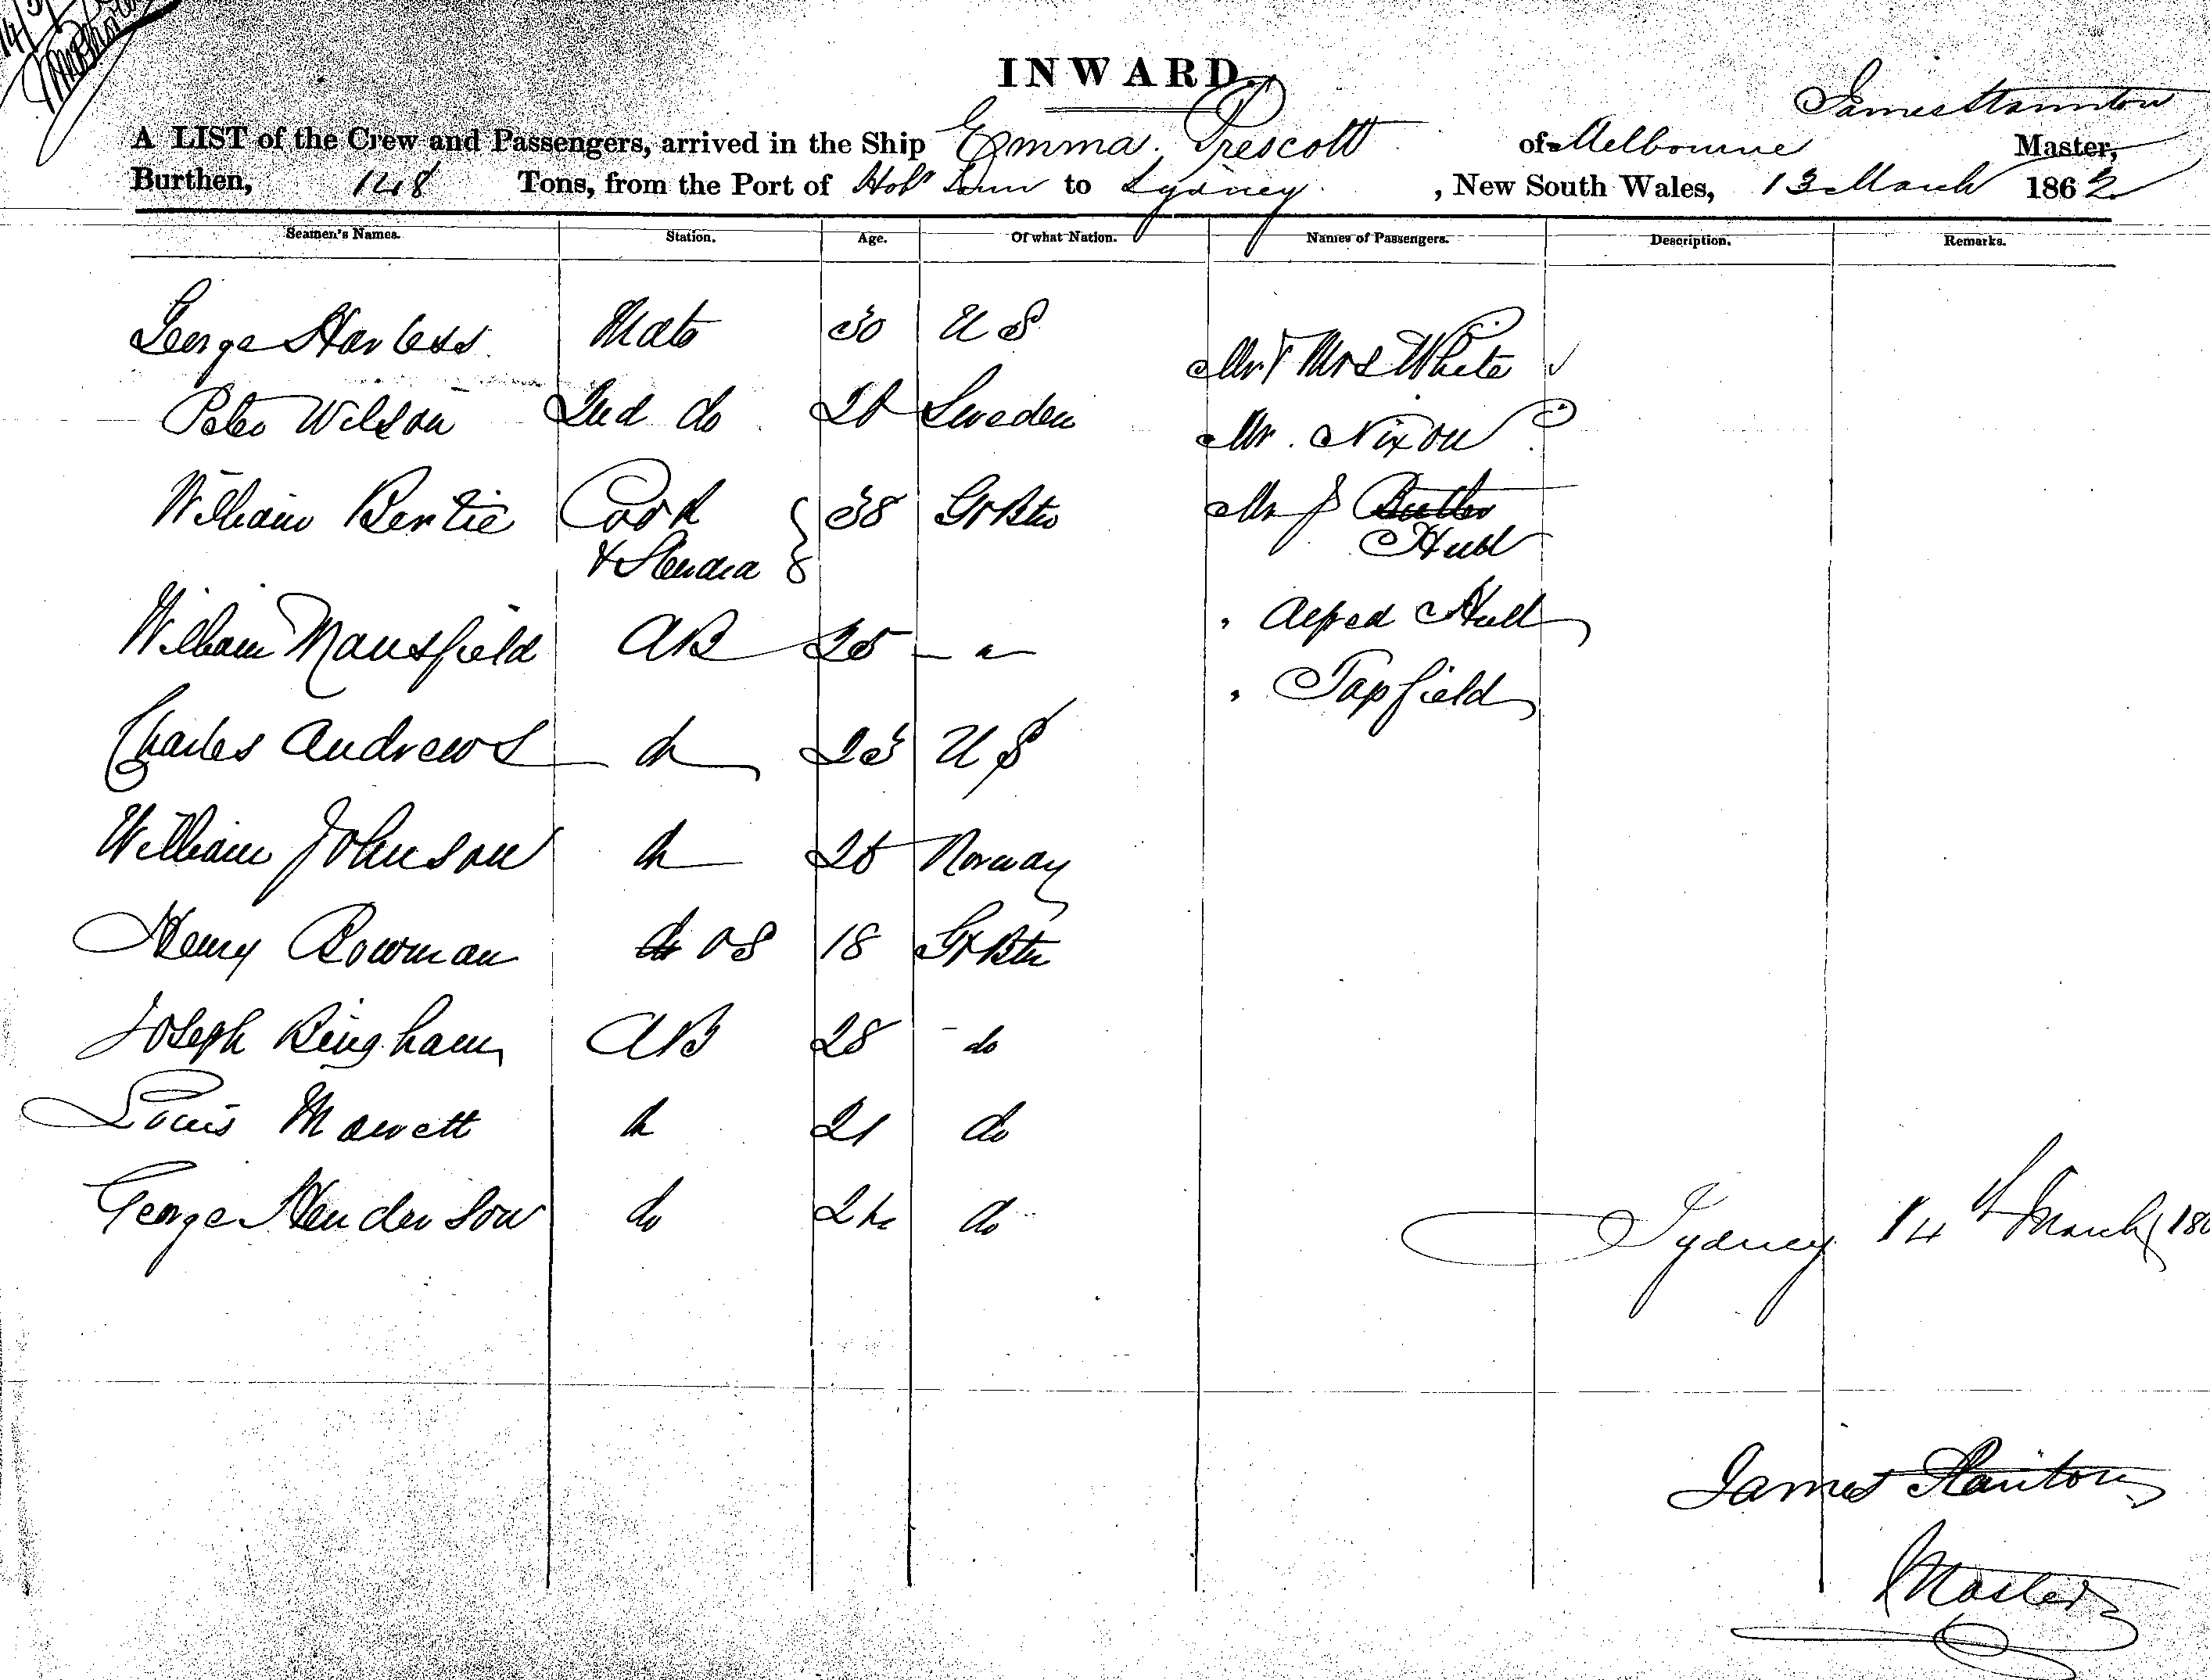 INWARD.
James Stanton
A LIST of the Crew and Passengers, arrived in the Ship Emma Prescott of Melbourne Master,
Burthen, 148 Tons, from the Port of Hobt Town to Sydney, New South Wales, 13 March 1862
Seamen's Names. Station. Age. Of what Nation. Names of Passengers. Description. Remarks.
George Mate 30 U S Mr & Mrs White
Peter Wilson 2nd do Sweden Mr. Nixon
William Bertie Cook 38 Gt Btn Mr J Butler
& Hull
William Mansfield AB 25 Alfred Hull
Tapfield
Charles Andrews do 23 U S
William Johnson do Norway
Henry Bowman do OS 18 Gt Btn
Joseph Bingham AB 28 do
Louis do 21 do
George Henderson do do
Sydney 14th March 186
James Stanton
Master